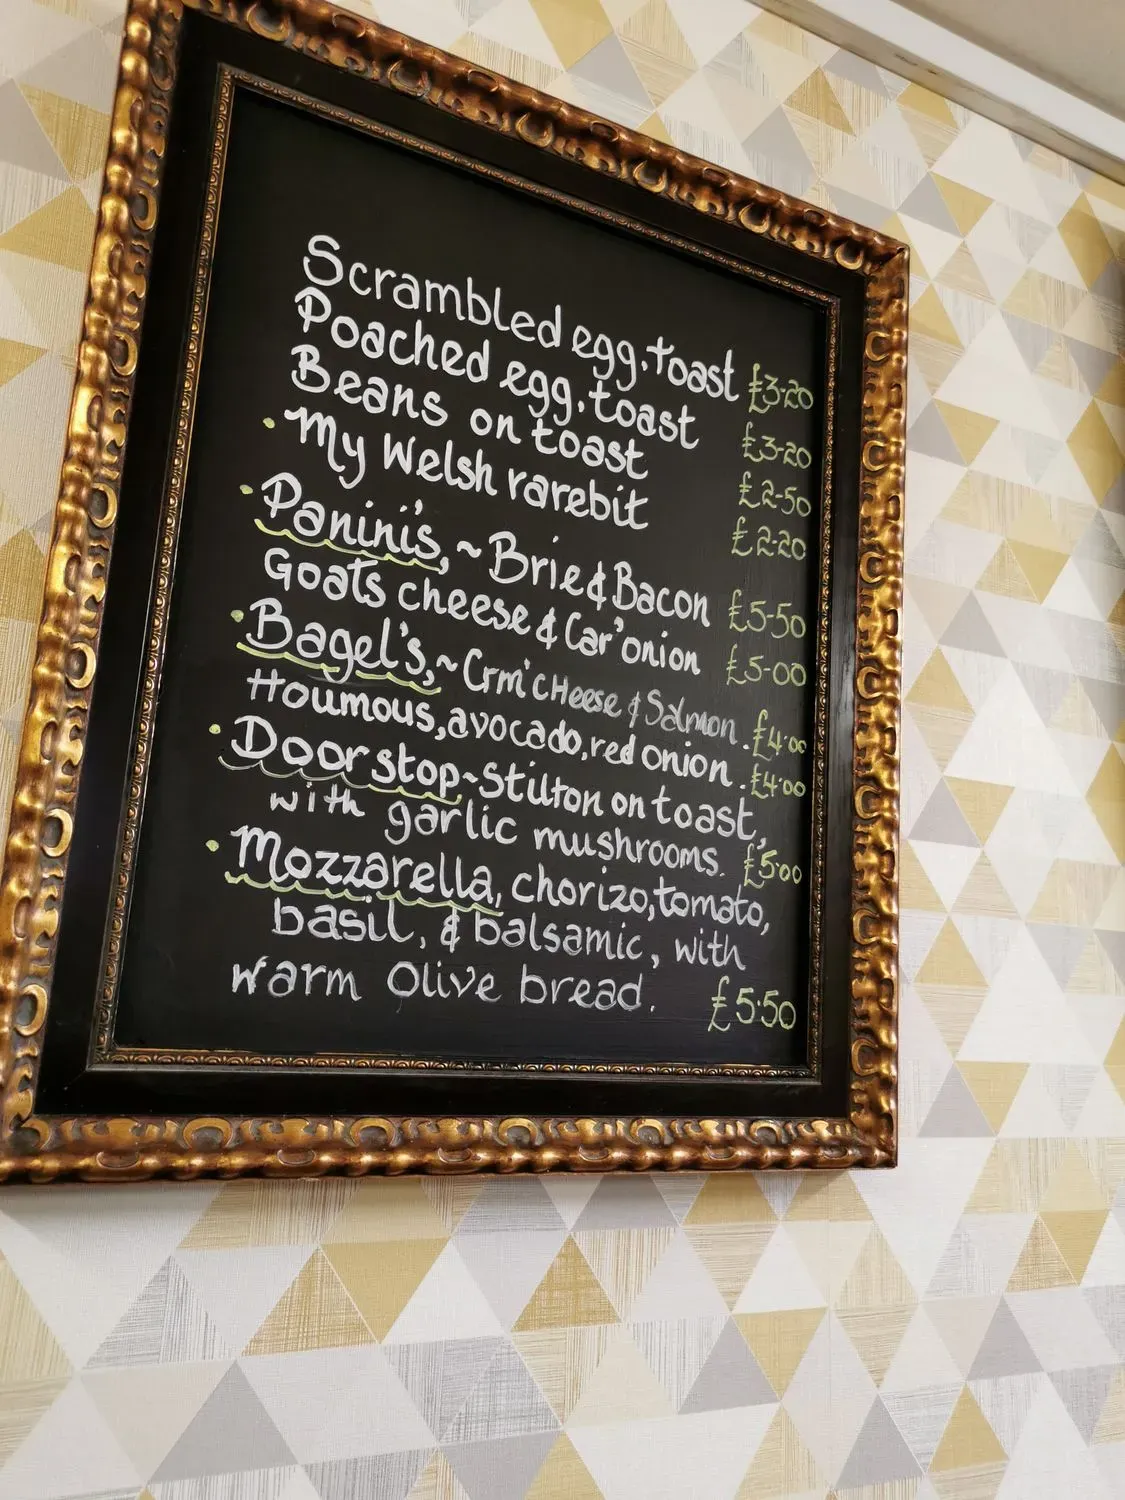 Scrambled egg, toast £3-20
Poached egg, toast £3-20
Beans on toast £2-50
• My Welsh rarebit £2-20
• Panini's, ~ Brie & Bacon £5-50
Goats cheese & Car'onion £5-00
• Bagel's, ~ Crm'cHeese & Salmon. £4·00
Houmous, avocado, red onion. £4·00
• Doorstop ~ Stilton on toast,
with garlic mushrooms. £5·00
• Mozzarella, chorizo, tomato,
basil, & balsamic, with
warm Olive bread. £5·50